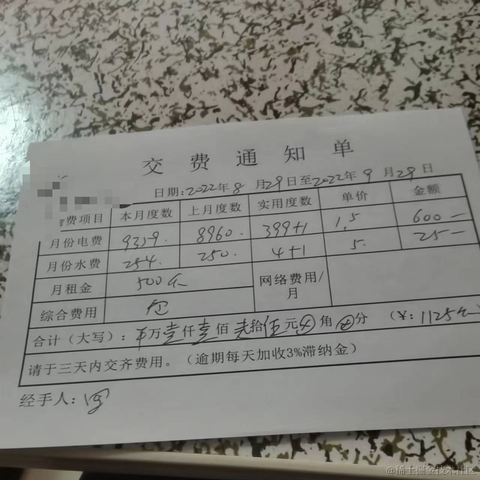 交费通知单
日期：2022年8月29日至2022年9月28日
费项目 本月度数 上月度数 实用度数 单价 金额
月份电费 9359. 8960. 399+1 1.5 600—
月份水费 254. 250. 4+1 5. 25—
月租金 500元 网络费用/月
综合费用
合计（大写）：万壹仟壹佰贰拾伍元角分 （¥：1125元）
请于三天内交齐费用。（逾期每天加收3%滞纳金）
经手人：
@稀土掘金技术社区